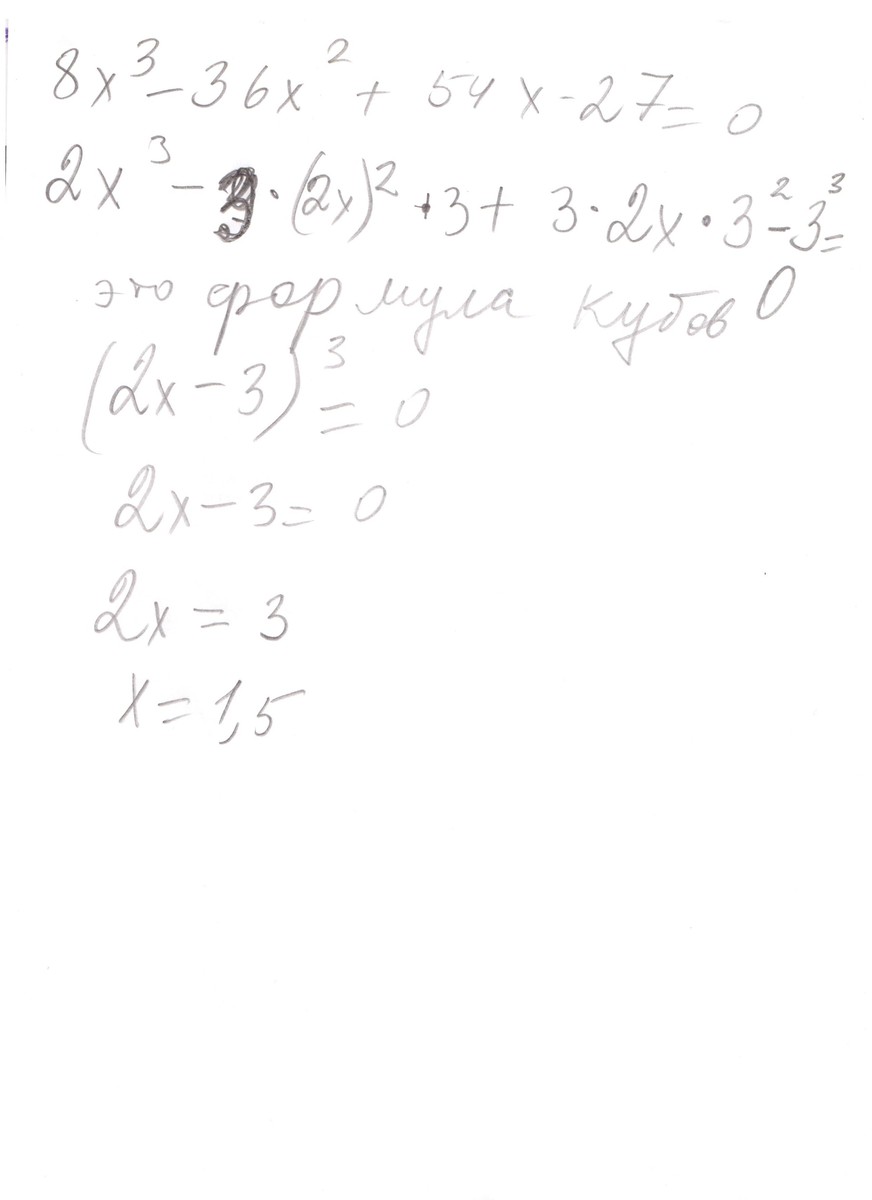 8x³ - 36x² + 54x - 27 = 0
2x³ - 3 · (2x)² · 3 + 3 · 2x · 3² - 3³ =
это формула кубов 0
(2x - 3)³ = 0
2x - 3 = 0
2x = 3
x = 1,5